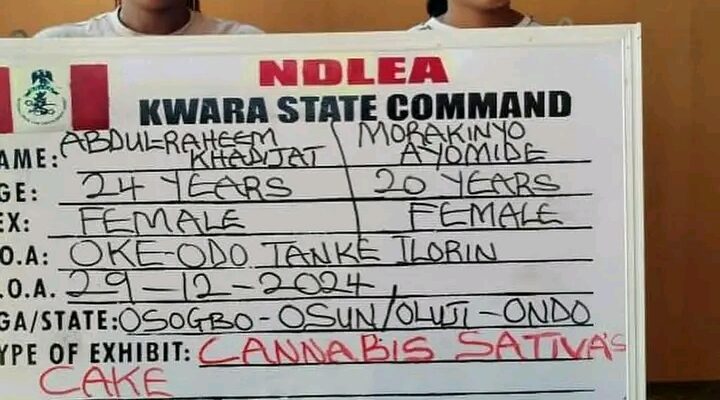 NDLEA
KWARA STATE COMMAND
AME: ABDUL-RAHEEM KHADIJAT MORAKINYO AYOMIDE
GE: 24 YEARS 20 YEARS
EX: FEMALE FEMALE
.O.A: OKE-ODO TANKE ILORIN
.O.A. 29-12-2024
GA/STATE: OSOGBO-OSUN/OLUJI-ONDO
YPE OF EXHIBIT: CANNABIS SATIVA'S
CAKE